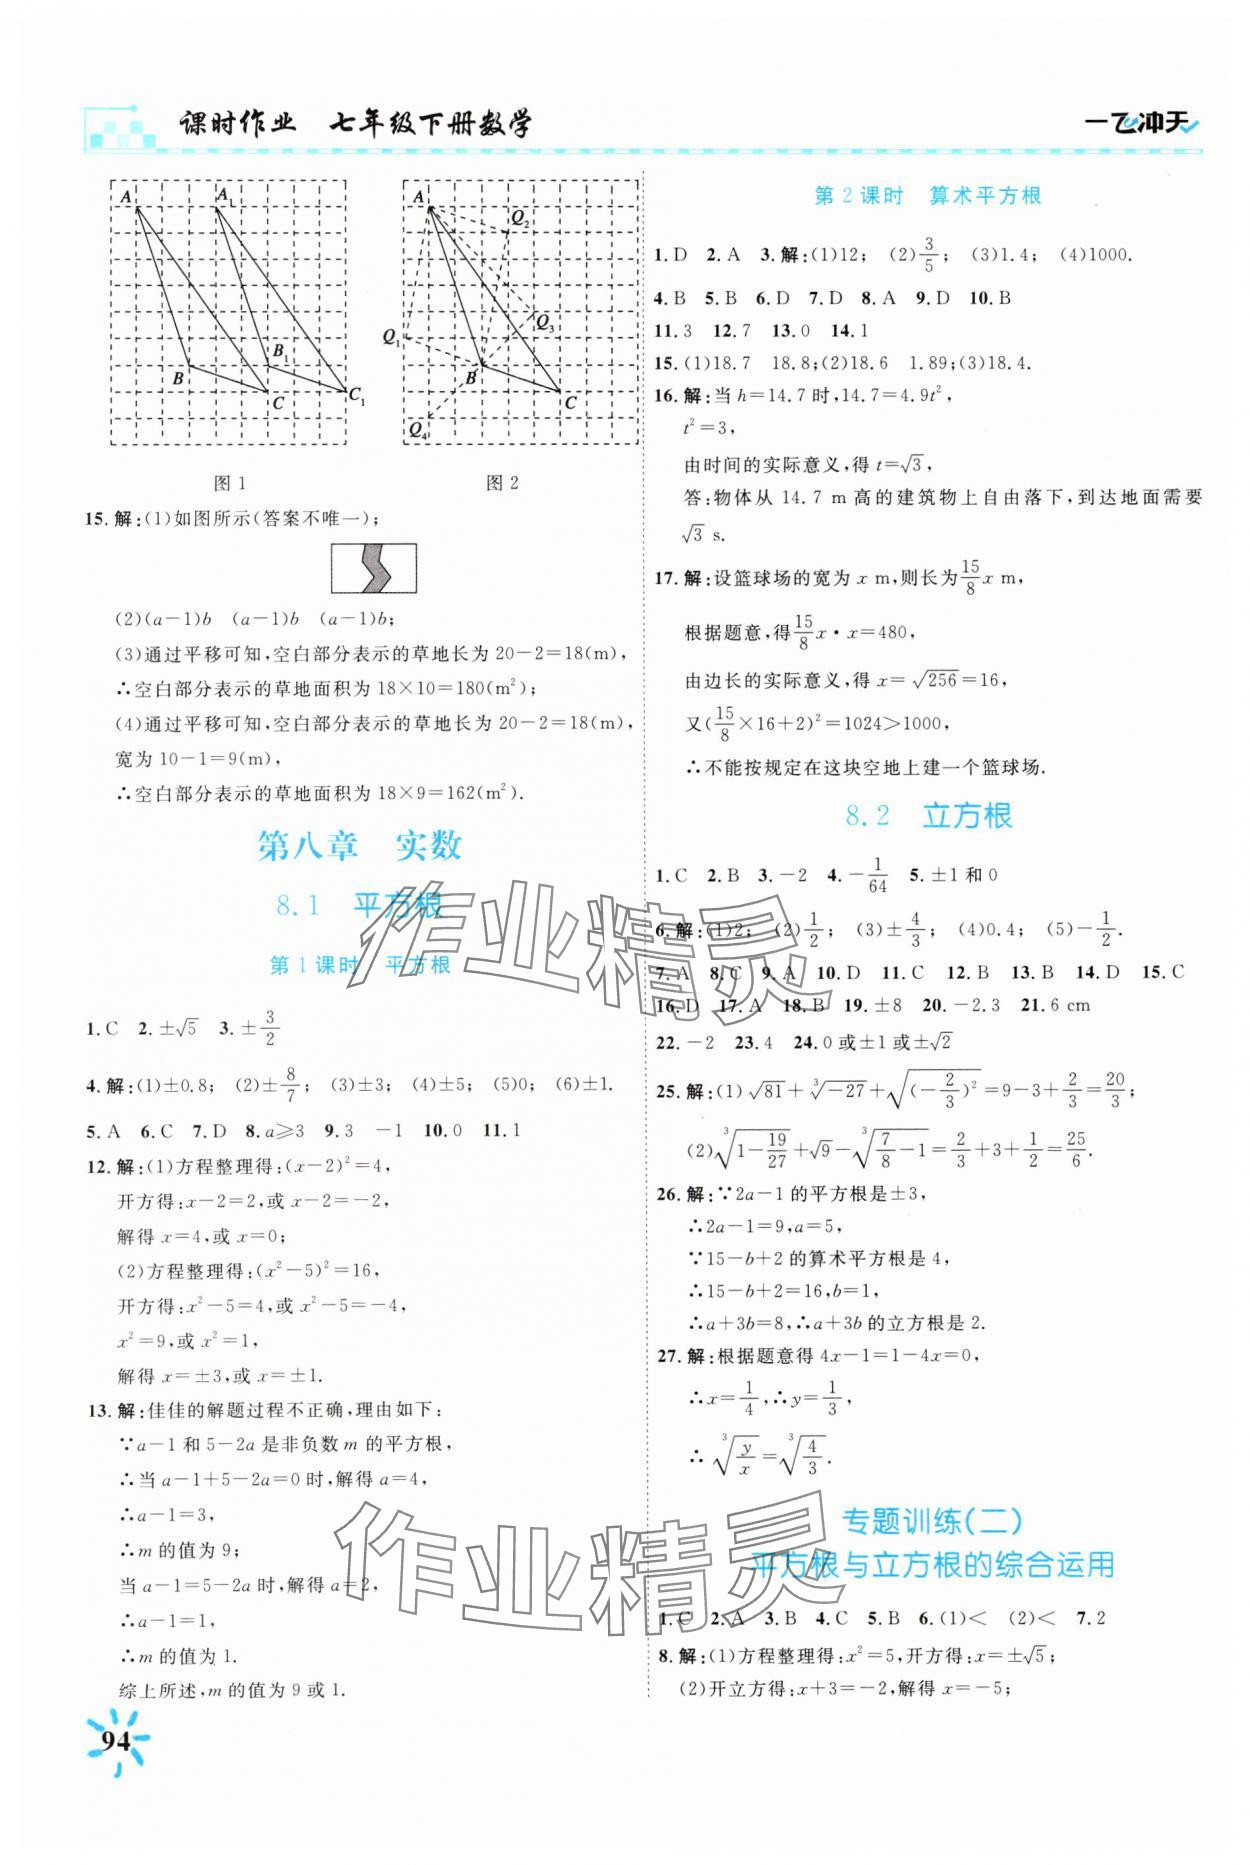 课时作业 七年级下册数学
一飞冲天
A A₁ B B₁ C C₁
图1
A Q₂ Q₃ Q₁ B C Q₄
图2
15.解:(1)如图所示(答案不唯一);
(2)(a-1)b (a-1)b (a-1)b;
(3)通过平移可知,空白部分表示的草地长为20-2=18(m),
∴空白部分表示的草地面积为18×10=180(m²);
(4)通过平移可知,空白部分表示的草地长为20-2=18(m),
宽为10-1=9(m),
∴空白部分表示的草地面积为18×9=162(m²).
第八章 实数
8.1 平方根
第1课时 平方根
1.C 2.±√5 3.±3/2
4.解:(1)±0.8; (2)±8/7; (3)±3; (4)±5; (5)0; (6)±1.
5.A 6.C 7.D 8.a≥3 9.3 -1 10.0 11.1
12.解:(1)方程整理得:(x-2)²=4,
开方得:x-2=2,或x-2=-2,
解得x=4,或x=0;
(2)方程整理得:(x²-5)²=16,
开方得:x²-5=4,或x²-5=-4,
x²=9,或x²=1,
解得x=±3,或x=±1.
13.解:佳佳的解题过程不正确,理由如下:
∵a-1和5-2a是非负数m的平方根,
∴当a-1+5-2a=0时,解得a=4,
∴a-1=3,
∴m的值为9;
当a-1=5-2a时,解得a=2,
∴a-1=1,
∴m的值为1.
综上所述,m的值为9或1.
94
第2课时 算术平方根
1.D 2.A 3.解:(1)12; (2)3/5; (3)1.4; (4)1000.
4.B 5.B 6.D 7.D 8.A 9.D 10.B
11.3 12.7 13.0 14.1
15.(1)18.7 18.8;(2)18.6 1.89;(3)18.4.
16.解:当h=14.7时,14.7=4.9t²,
t²=3,
由时间的实际意义,得t=√3,
答:物体从14.7 m高的建筑物上自由落下,到达地面需要
√3 s.
17.解:设篮球场的宽为x m,则长为15/8 x m,
根据题意,得15/8 x·x=480,
由边长的实际意义,得x=√256=16,
又(15/8×16+2)²=1024>1000,
∴不能按规定在这块空地上建一个篮球场.
8.2 立方根
1.C 2.B 3.-2 4.-1/64 5.±1和0
6.解:(1)2; (2)1/2; (3)±4/3; (4)0.4; (5)-1/2.
7.A 8.C 9.A 10.D 11.C 12.B 13.B 14.D 15.C
16.D 17.A 18.B 19.±8 20.-2,3 21.6 cm
22.-2 23.4 24.0或±1或±√2
25.解:(1)√81+³√-27+√(-2/3)²=9-3+2/3=20/3;
(2)³√1-19/27+√9-³√7/8-1=2/3+3+1/2=25/6.
26.解:∵2a-1的平方根是±3,
∴2a-1=9,a=5,
∵15-b+2的算术平方根是4,
∴15-b+2=16,b=1,
∴a+3b=8,∴a+3b的立方根是2.
27.解:根据题意得4x-1=1-4x=0,
∴x=1/4,∴y=1/3,
∴³√y/x=³√4/3.
专题训练(二)
平方根与立方根的综合运用
1.C 2.A 3.B 4.C 5.B 6.(1)< (2)< 7.2
8.解:(1)方程整理得:x²=5,开方得:x=±√5;
(2)开立方得:x+3=-2,解得x=-5;
作业精灵
作业精灵